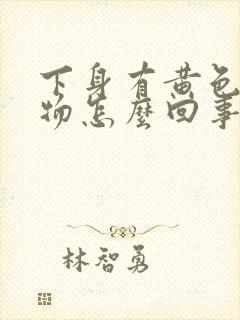 下身有黄色
物怎麼回事
林智勇